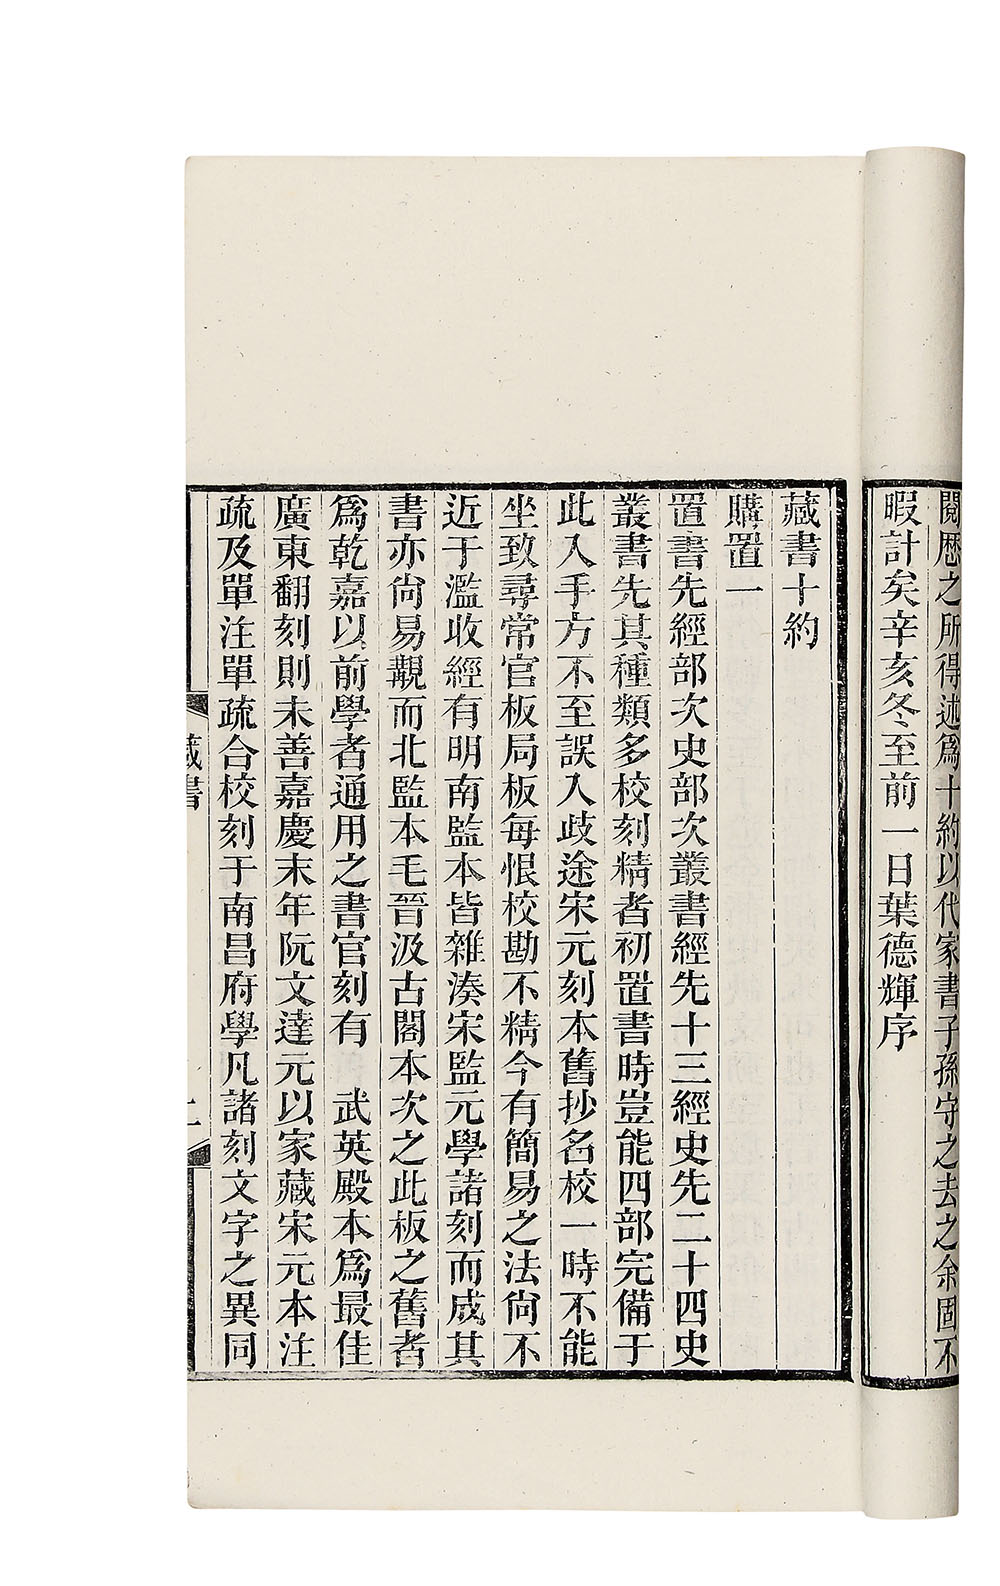 閱歷之所得述爲十約以代家書子孫守之去之余固不
暇計矣辛亥冬至前一日葉德輝序
藏書十約
購置一
置書先經部次史部次叢書經先十三經史先二十四史
叢書先其種類多校刻精者初置書時豈能四部完備于
此入手方不至誤入歧途宋元刻本舊抄名校一時不能
坐致尋常官板局板每恨校勘不精今有簡易之法尙不
近于濫收經有明南監本皆雜湊宋監元學諸刻而成其
書亦尙易覯而北監本毛晉汲古閣本次之此板之舊者
爲乾嘉以前學者通用之書官刻有　武英殿本爲最佳
廣東翻刻則未善嘉慶末年阮文達元以家藏宋元本注
疏及單注單疏合校刻于南昌府學凡諸刻文字之異同
藏書